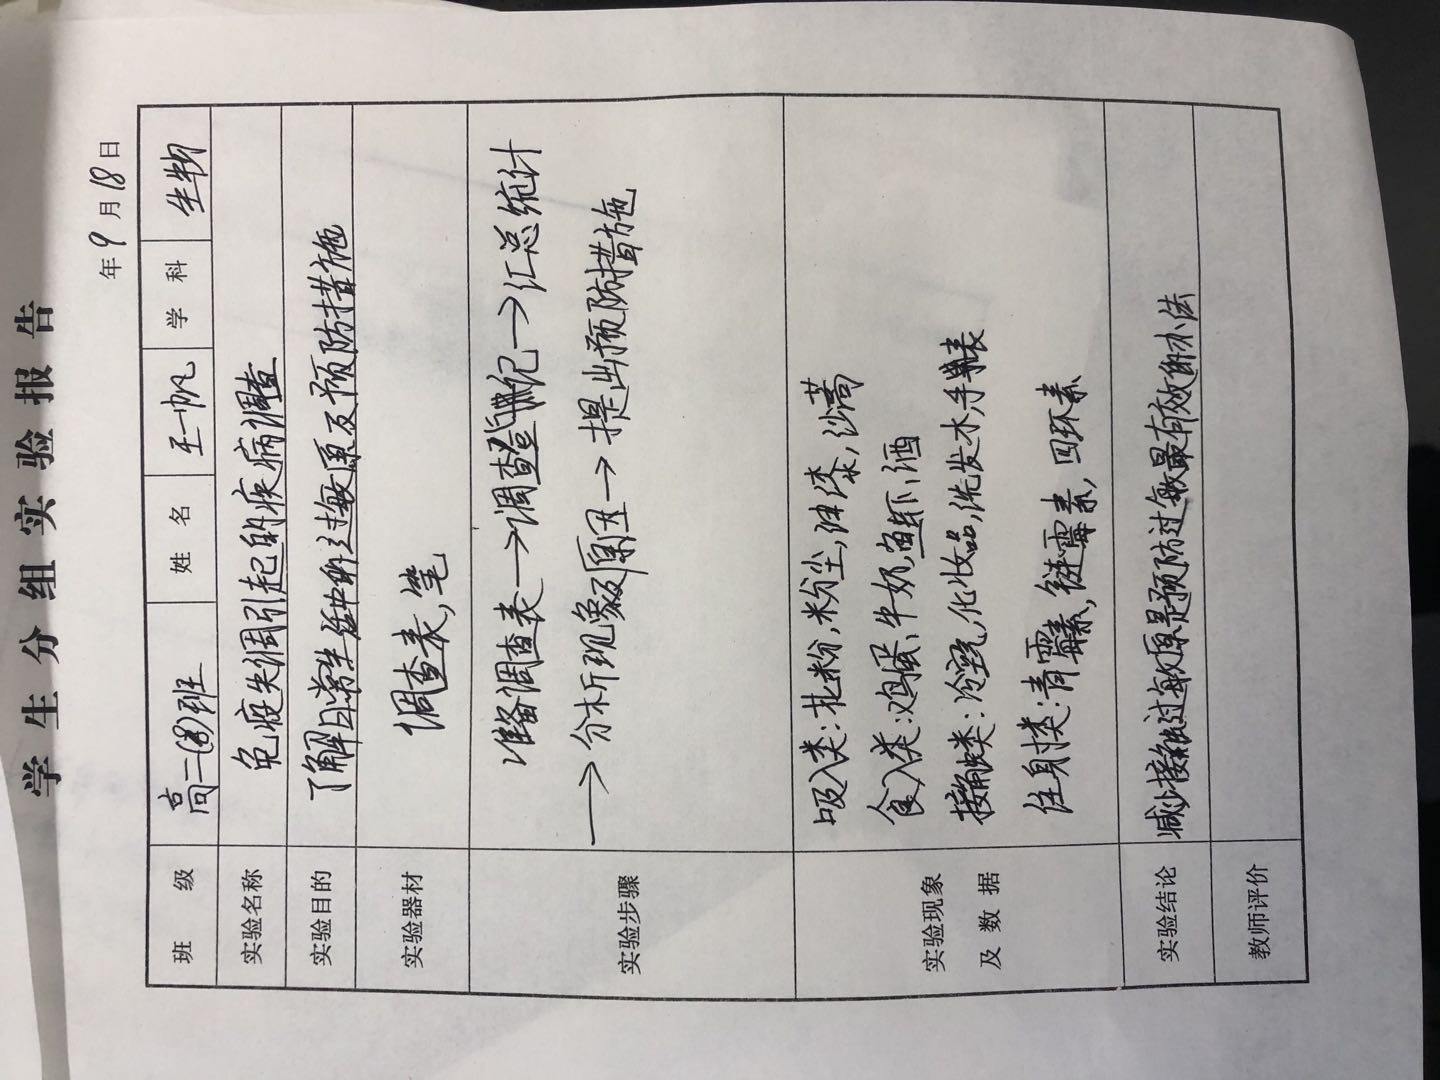 学生分组实验报告
年 9 月 18 日
班 级 高二(8)班 姓 名 王一帆 学 科 生物
实验名称 免疫失调引起的疾病调查
实验目的 了解日常生活中的过敏原及预防措施
实验器材 调查表,笔
实验步骤
准备调查表→调查登记→汇总统计
→分析现象及原因→提出预防措施
实验现象
及 数 据
吸入类:扎粉,粉尘,油漆,沙蒿
食入类:鸡蛋,牛奶,鱼虾,酒
接触类:冷空气,化妆品,洗发水,手表
住身类:青霉素,链霉素,四环素
实验结论 减少接触过敏原是预防过敏最有效的办法
教师评价